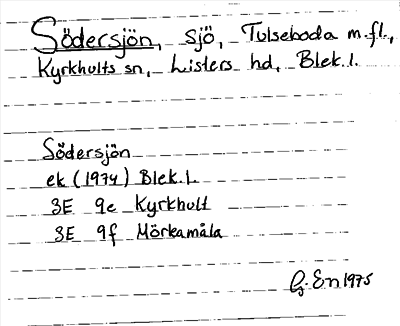 Södersjön, sjö, Tulseboda m.fl.,
Kyrkhults sn, Listers hd, Blek.l.
Södersjön
ek (1974) Blek.l.
3E 9e Kyrkhult
3E 9f Mörkamåla
G. En 1975